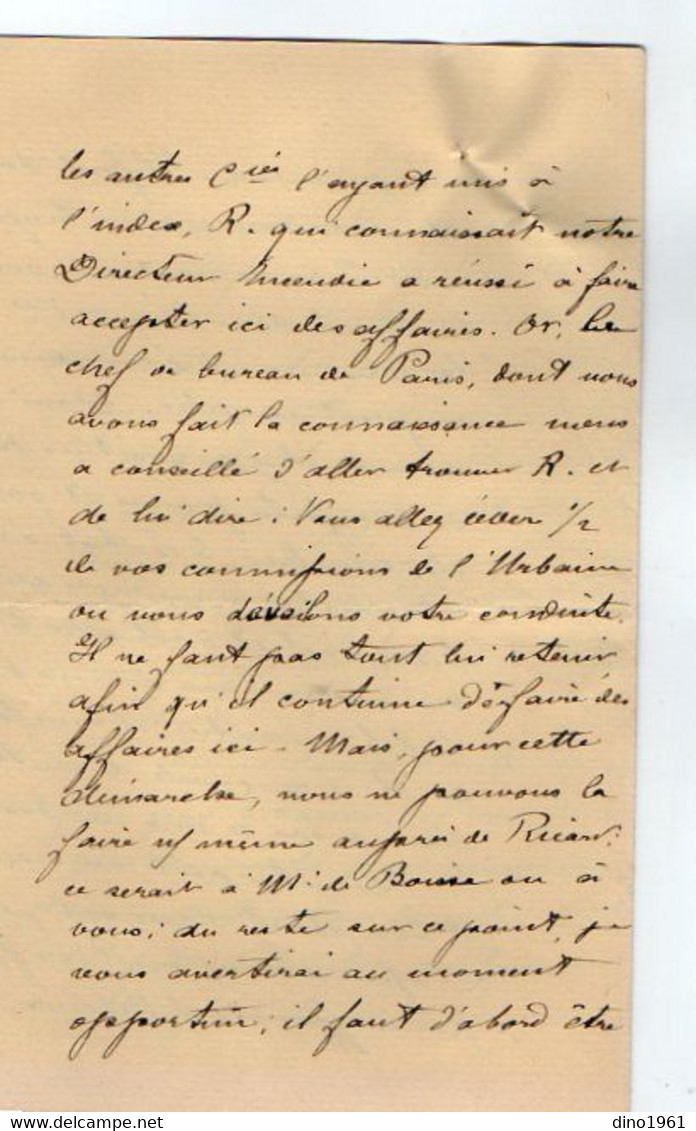 les autres Cies l'ayant mis à
l'index, R. qui connaissait notre
Directeur Incendie a réussi à faire
accepter ici des affaires. Or, le
chef de bureau de Paris, dont nous
avons fait la connaissance nous
a conseillé d'aller trouver R. et
de lui dire : Vous allez céder 1/2
de vos commissions de l'Urbaine
ou nous dévoilons votre conduite.
Il ne faut pas tout lui retenir
afin qu'il continue de faire des
affaires ici. Mais, pour cette
démarche, nous ne pouvons la
faire même auprès de Ricard;
ce serait à Mr de Boisse ou à
vous; du reste sur ce point, je
vous avertirai au moment
opportun; il faut d'abord être
dino1961